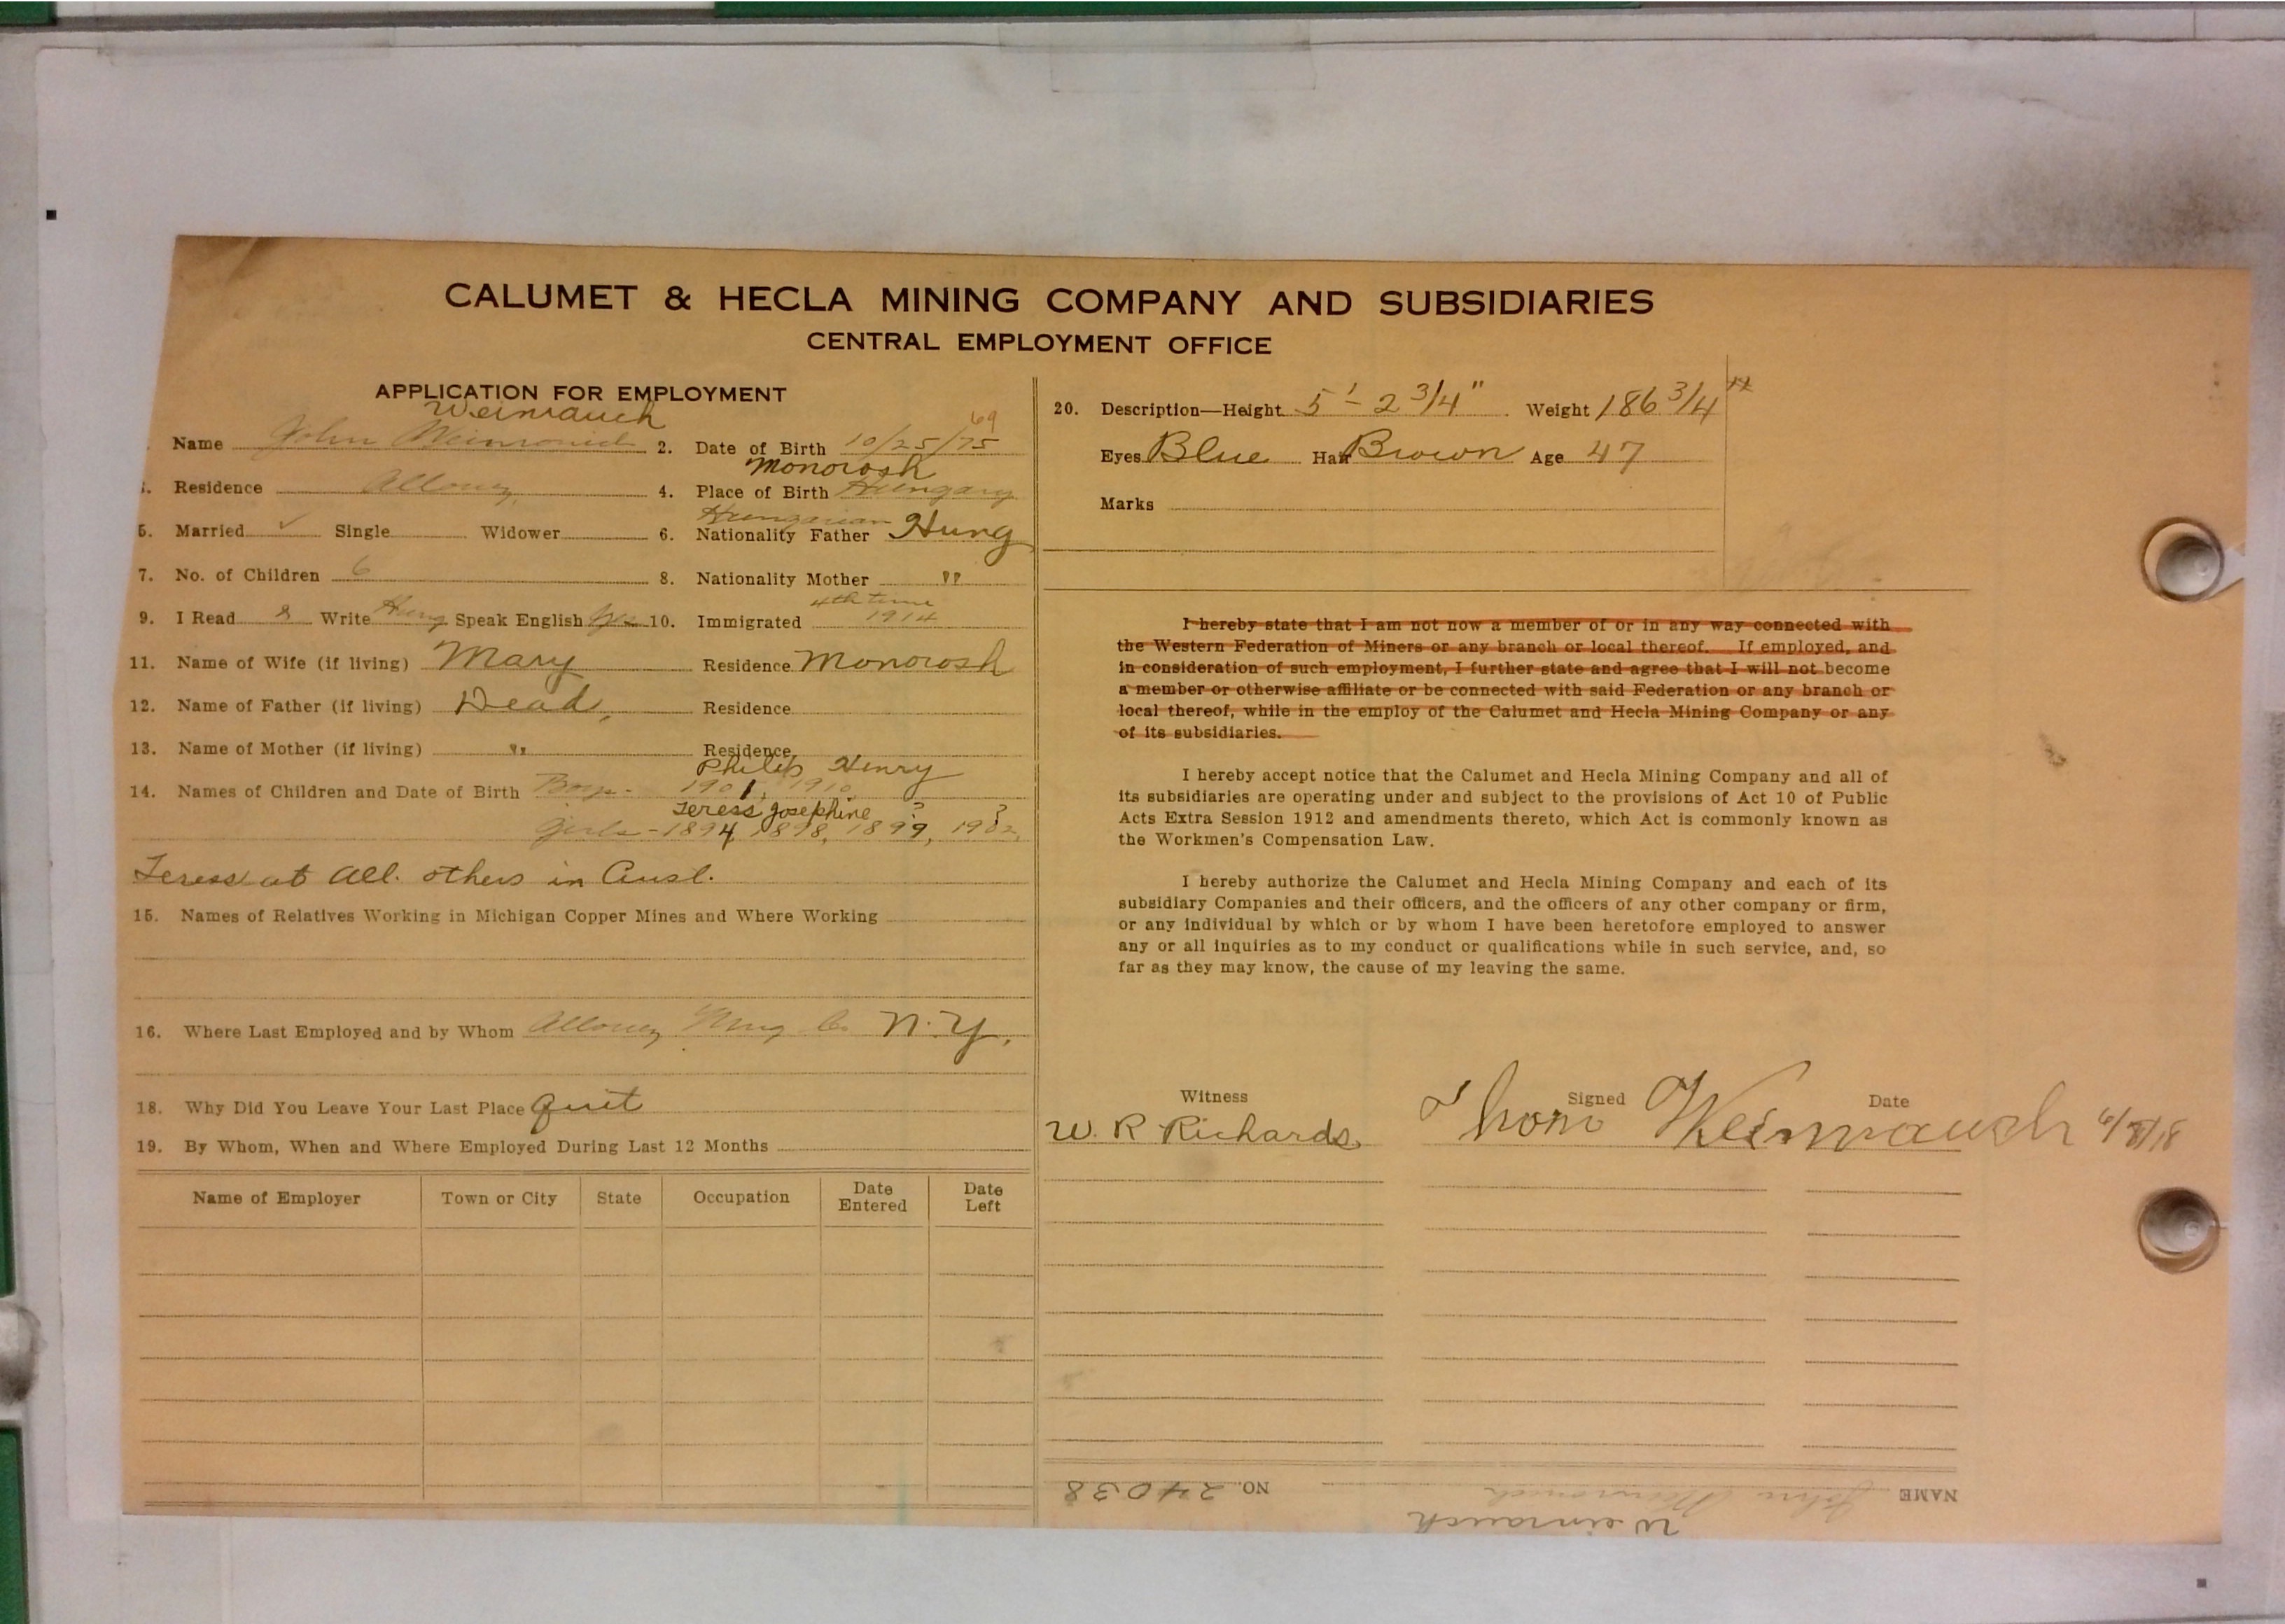 CALUMET & HECLA MINING COMPANY AND SUBSIDIARIES
CENTRAL EMPLOYMENT OFFICE
APPLICATION FOR EMPLOYMENT
Weinrauch
Name John 2. Date of Birth 10/25/75 69
Monorosh
Residence Allouez, 4. Place of Birth Hungary
Hungarian
5. Married ✓ Single Widower 6. Nationality Father Hung
7. No. of Children 6 8. Nationality Mother "
4th time
9. I Read & Write Hung Speak English Yes 10. Immigrated 1914
11. Name of Wife (if living) Mary Residence Monorosh
12. Name of Father (if living) Dead, Residence
13. Name of Mother (if living) " Residence
Philip Henry
14. Names of Children and Date of Birth Boys - 1901, 1910
Teress Josephine ? ?
Girls - 1894, 1898, 1899, 1902,
Teress at All. others in Aust.
15. Names of Relatives Working in Michigan Copper Mines and Where Working
16. Where Last Employed and by Whom Allouez Mng Co. N.Y,
18. Why Did You Leave Your Last Place Quit
19. By Whom, When and Where Employed During Last 12 Months
Name of Employer Town or City State Occupation Date Entered Date Left
20. Description—Height 5' - 2 3/4" Weight 186 3/4 #
Eyes Blue Hair Brown Age 47
Marks
I hereby state that I am not now a member of or in any way connected with
the Western Federation of Miners or any branch or local thereof. If employed, and
in consideration of such employment, I further state and agree that I will not become
a member or otherwise affiliate or be connected with said Federation or any branch or
local thereof, while in the employ of the Calumet and Hecla Mining Company or any
of its subsidiaries.
I hereby accept notice that the Calumet and Hecla Mining Company and all of
its subsidiaries are operating under and subject to the provisions of Act 10 of Public
Acts Extra Session 1912 and amendments thereto, which Act is commonly known as
the Workmen's Compensation Law.
I hereby authorize the Calumet and Hecla Mining Company and each of its
subsidiary Companies and their officers, and the officers of any other company or firm,
or any individual by which or by whom I have been heretofore employed to answer
any or all inquiries as to my conduct or qualifications while in such service, and, so
far as they may know, the cause of my leaving the same.
Witness Signed Date
W. R Richards. Weinrauch
NAME John NO. 24038
Weinrauch